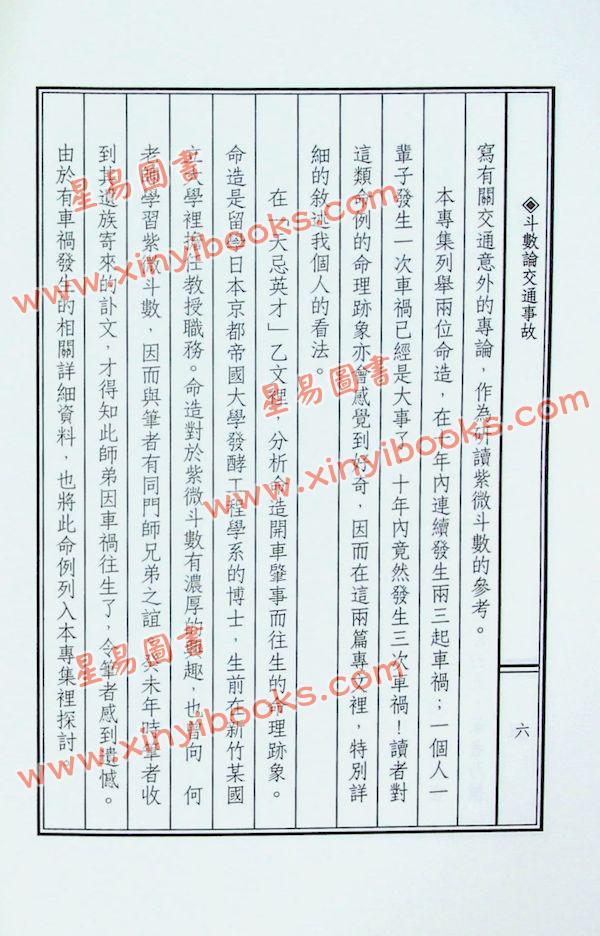 ◈斗數論交通事故
六
寫有關交通意外的專論，作為研讀紫微斗數的參考。
本專集列舉兩位命造，在十年內連續發生兩三起車禍；一個人一
輩子發生一次車禍已經是大事了，十年內竟然發生三次車禍！讀者對
這類命例的命理跡象亦會感覺到好奇，因而在這兩篇專文裡，特別詳
細的敘述我個人的看法。
在「天忌英才」乙文裡，分析命造開車肇事而往生的命理跡象。
命造是留學日本京都帝國大學發酵工程學系的博士，生前在新竹某國
立大學裡擔任教授職務。命造對於紫微斗數有濃厚的興趣，也曾向　何
老師學習紫微斗數，因而與筆者有同門師兄弟之誼。癸未年時筆者收
到其遺族寄來的訃文，才得知此師弟因車禍往生了，令筆者感到遺憾。
由於有車禍發生的相關詳細資料，也將此命例列入本專集裡探討。
星易圖書
www.xinyibooks.com
星易圖書
www.xinyibooks.com
星易圖書
www.xinyibooks.com